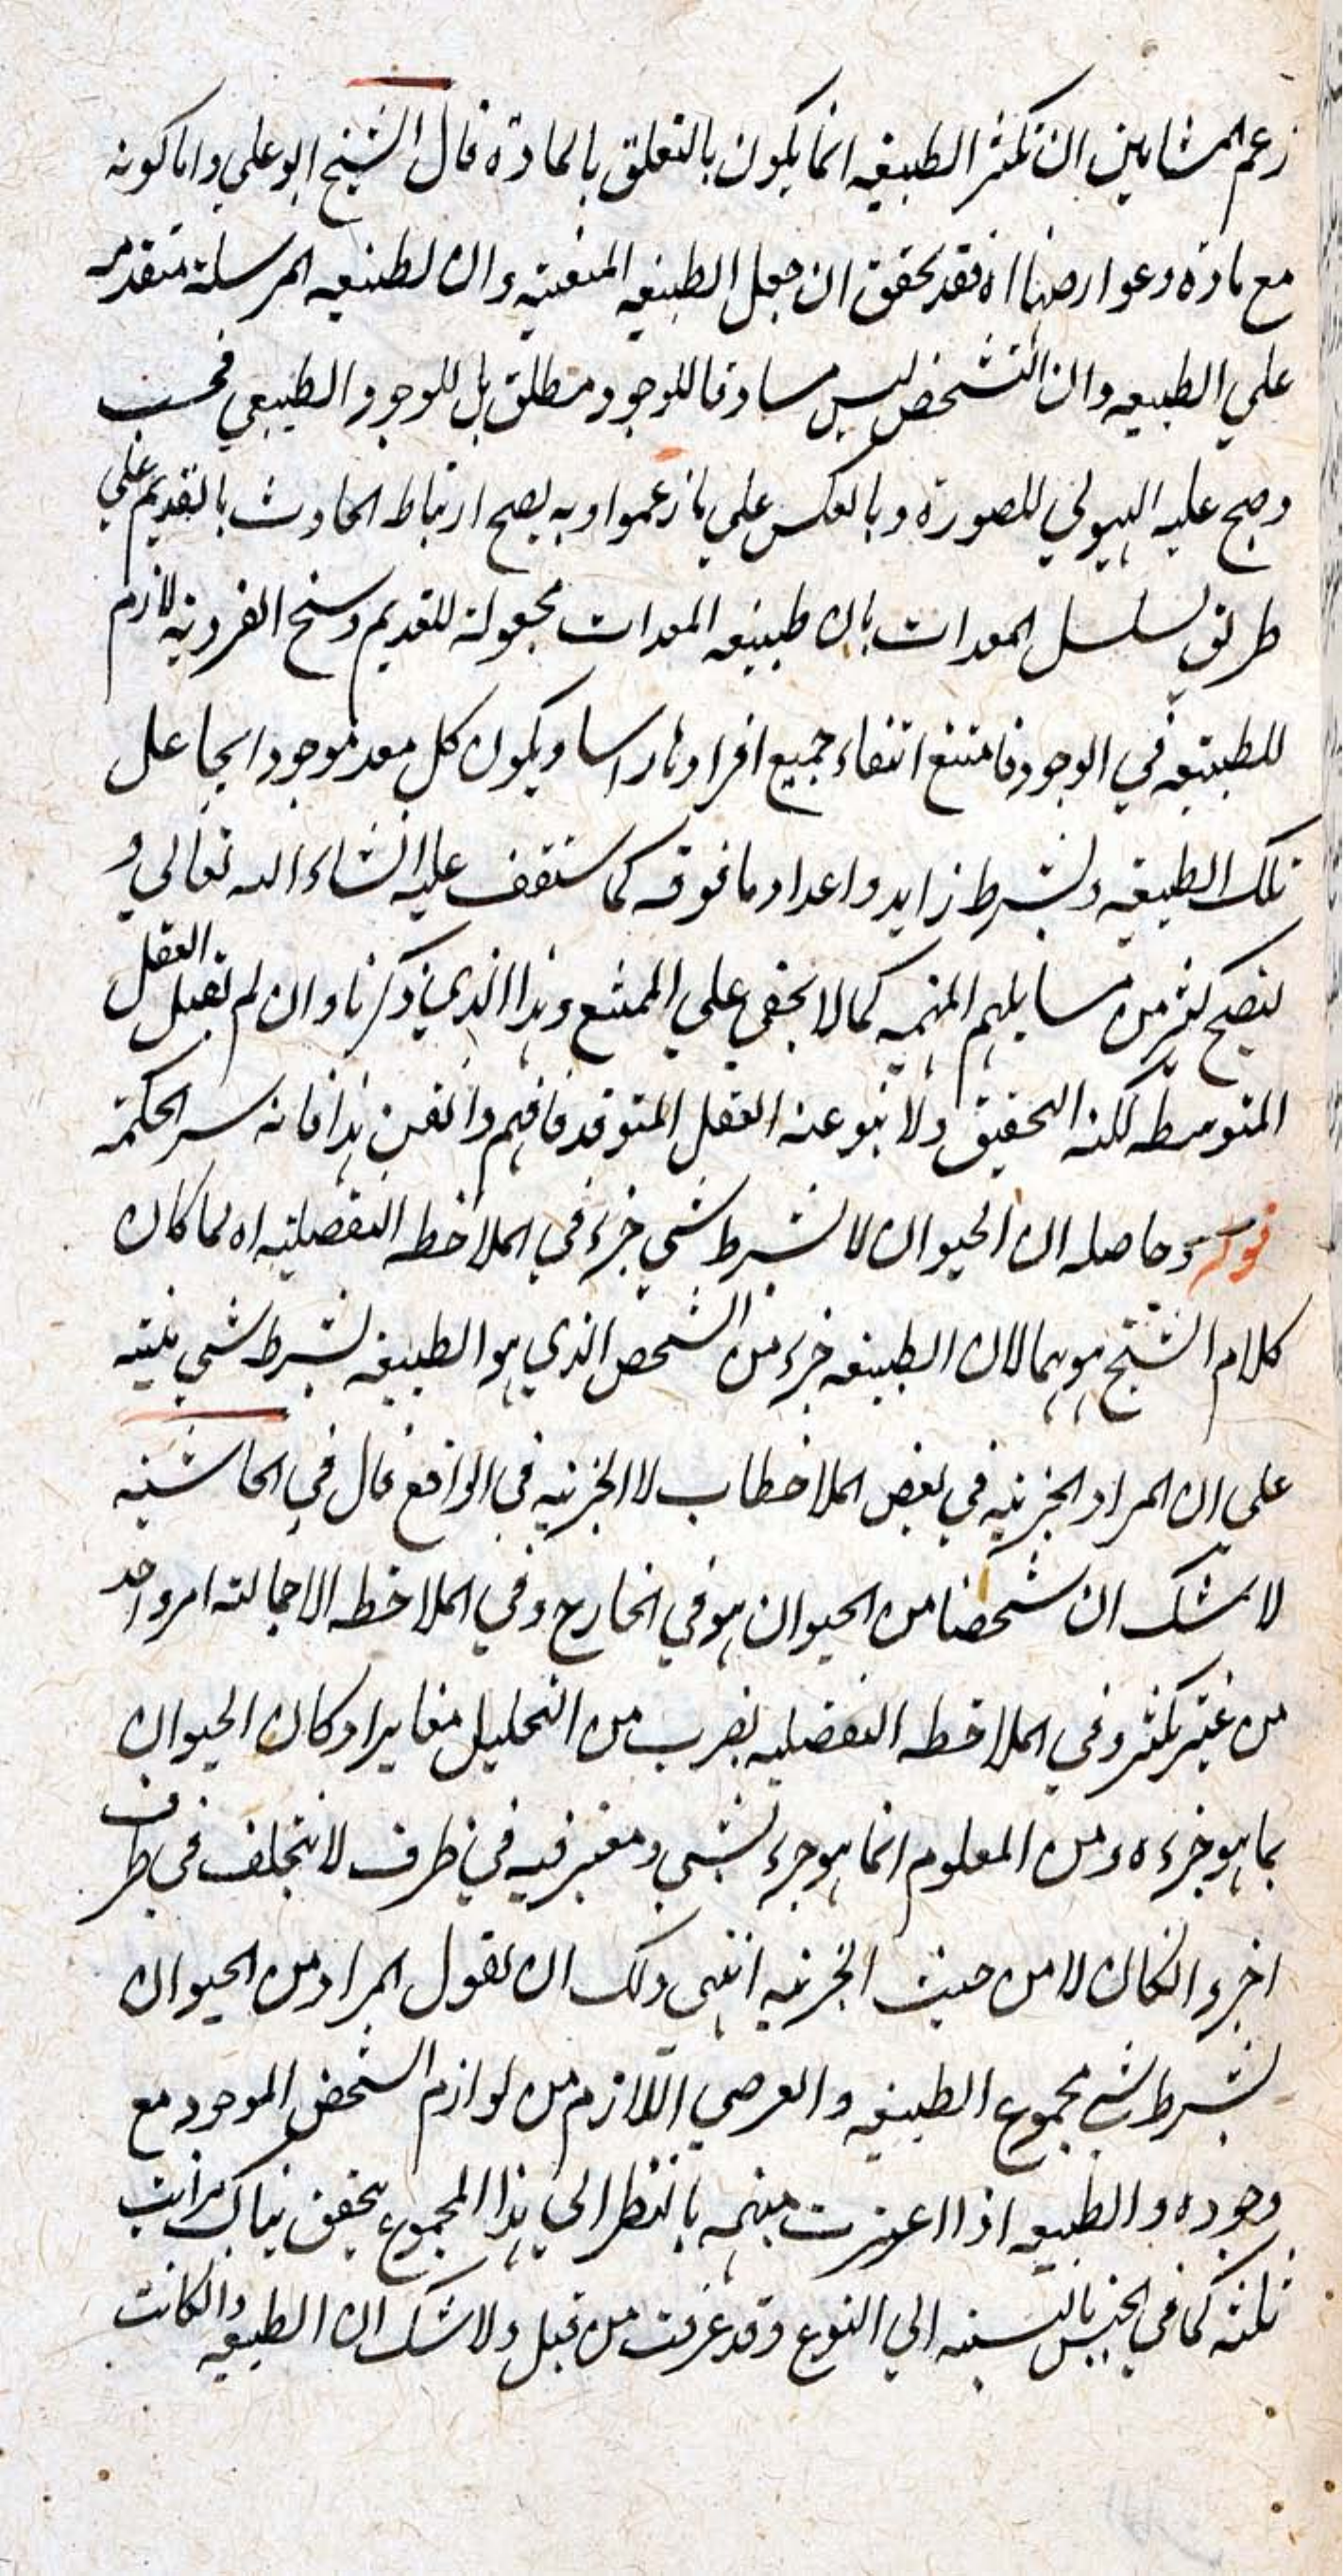 زعم المشايين ان تكثر الطبيعه انما يكون بالتعلق بالمادة قال الشيخ ابو علي واما كونه
مع مادة وعوارضها اه فقد تحقق ان جعل الطبيعه المتعينه وان الطبيعه المرسلة متقدمه
علي الطبيعه وان التشخص ليس مساوقا للوجود مطلق بل للوجود الطبيعي فحسب
وصح عليه الهيولي للصورة وبالعكس علي ما زعموا وبه يصح ارتباط الحادث بالقديم علي
طريق تسلسل المعدات بان طبيعه المعدات مجعولة للقديم وسنخ الفرديه لازم
للطبيعه في الوجود فامتنع انتفاء جميع افرادها راسا ويكون كل معد موجودا بجاعل
تلك الطبيعه وبشرط زايد واعداد ما فوقه كما ستقف عليه انشاء الله تعالي و
يتضح كثير من مسايلهم المهمه كما لا يخفي علي المتتبع وهذا الذي ذكرنا وان لم تقبل العقل
المتوسطه لكنه التحقيق ولا ينبو عنه العقل المتوقد فافهم واتقن هذا فانه سر الحكمة
قوله وحاصله ان الحيوان لا بشرط شي جزء في الملاحظه التفصليه اه لما كان
كلام الشيخ موهما لان الطبيعه جزء من الشخص الذي هو الطبيعه بشرط شي نبه
علي ان المراد الجزئيه في بعض الملاحظات لا الجزئيه في الواقع قال في الحاشيه
لا شك ان شخصا من الحيوان هو في الخارج وفي الملاحظه الاجماليه امر واحد
من غير تكثر وفي الملاحظه التفصليه بضرب من التحليل مغايرا وكان الحيوان
بما هو جزءه ومن المعلوم انما هو جزء لشي ومعتبر فيه في ظرف لا يتخلف في ظرف
اخر وانكان لا من حيث الجزئيه انتهي ولك ان تقول المراد من الحيوان
بشرط شي مجموع الطبيعه والعرضي اللازم من لوازم الشخص الموجود مع
وجوده والطبيعه اذا اعتبرت مبهمه بالنظر الي هذا المجموع يتحقق هناك مراتب
ثلثه كما في الجنس بالنسبه الي النوع وقد عرفت من قبل ولا شك ان الطبيعه وانكانت